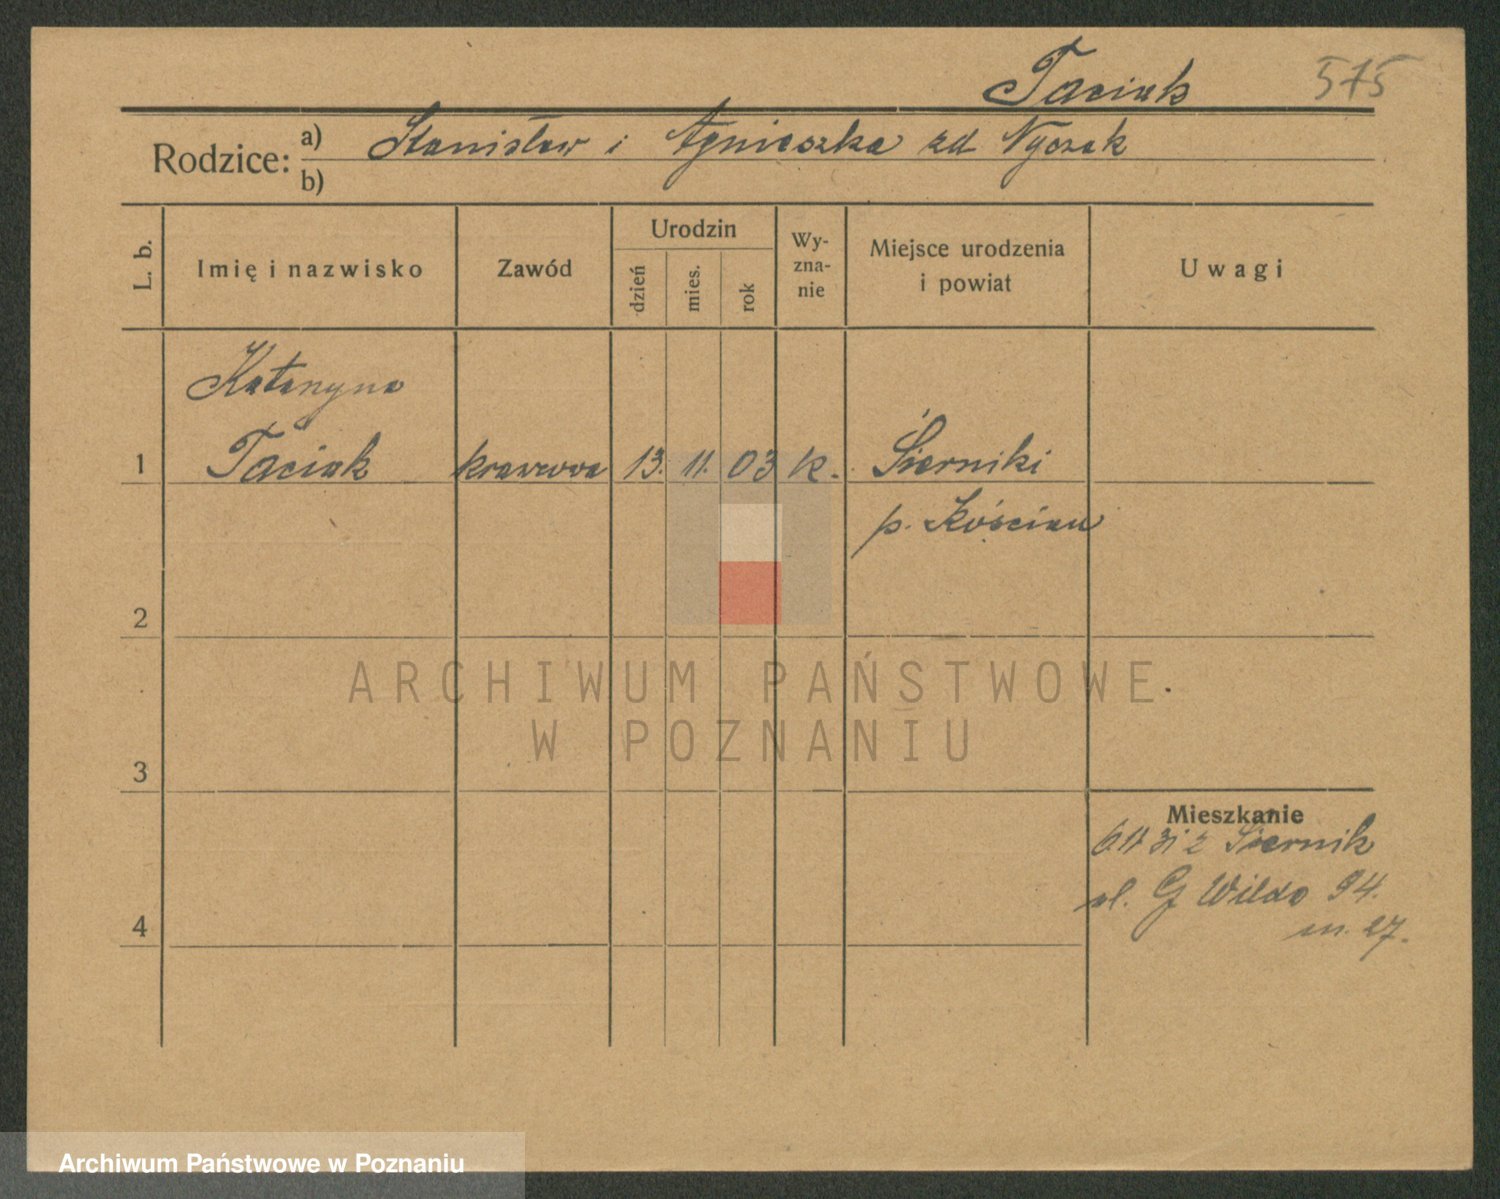 Taciak 575
Rodzice: a) Stanisław i Agnieszka zd Nyczak
b)
L. b. Imię i nazwisko Zawód Urodzin dzień mies. rok Wyznanie Miejsce urodzenia i powiat Uwagi
Katarzyna
1 Taciak krawcowa 13. 11. 03 k. Sierniki
p. Kościan
2
ARCHIWUM PAŃSTWOWE
W POZNANIU
3
Mieszkanie
6 11 31 z Siernik
ul. G Wilda 94.
4 m. 27.
Archiwum Państwowe w Poznaniu